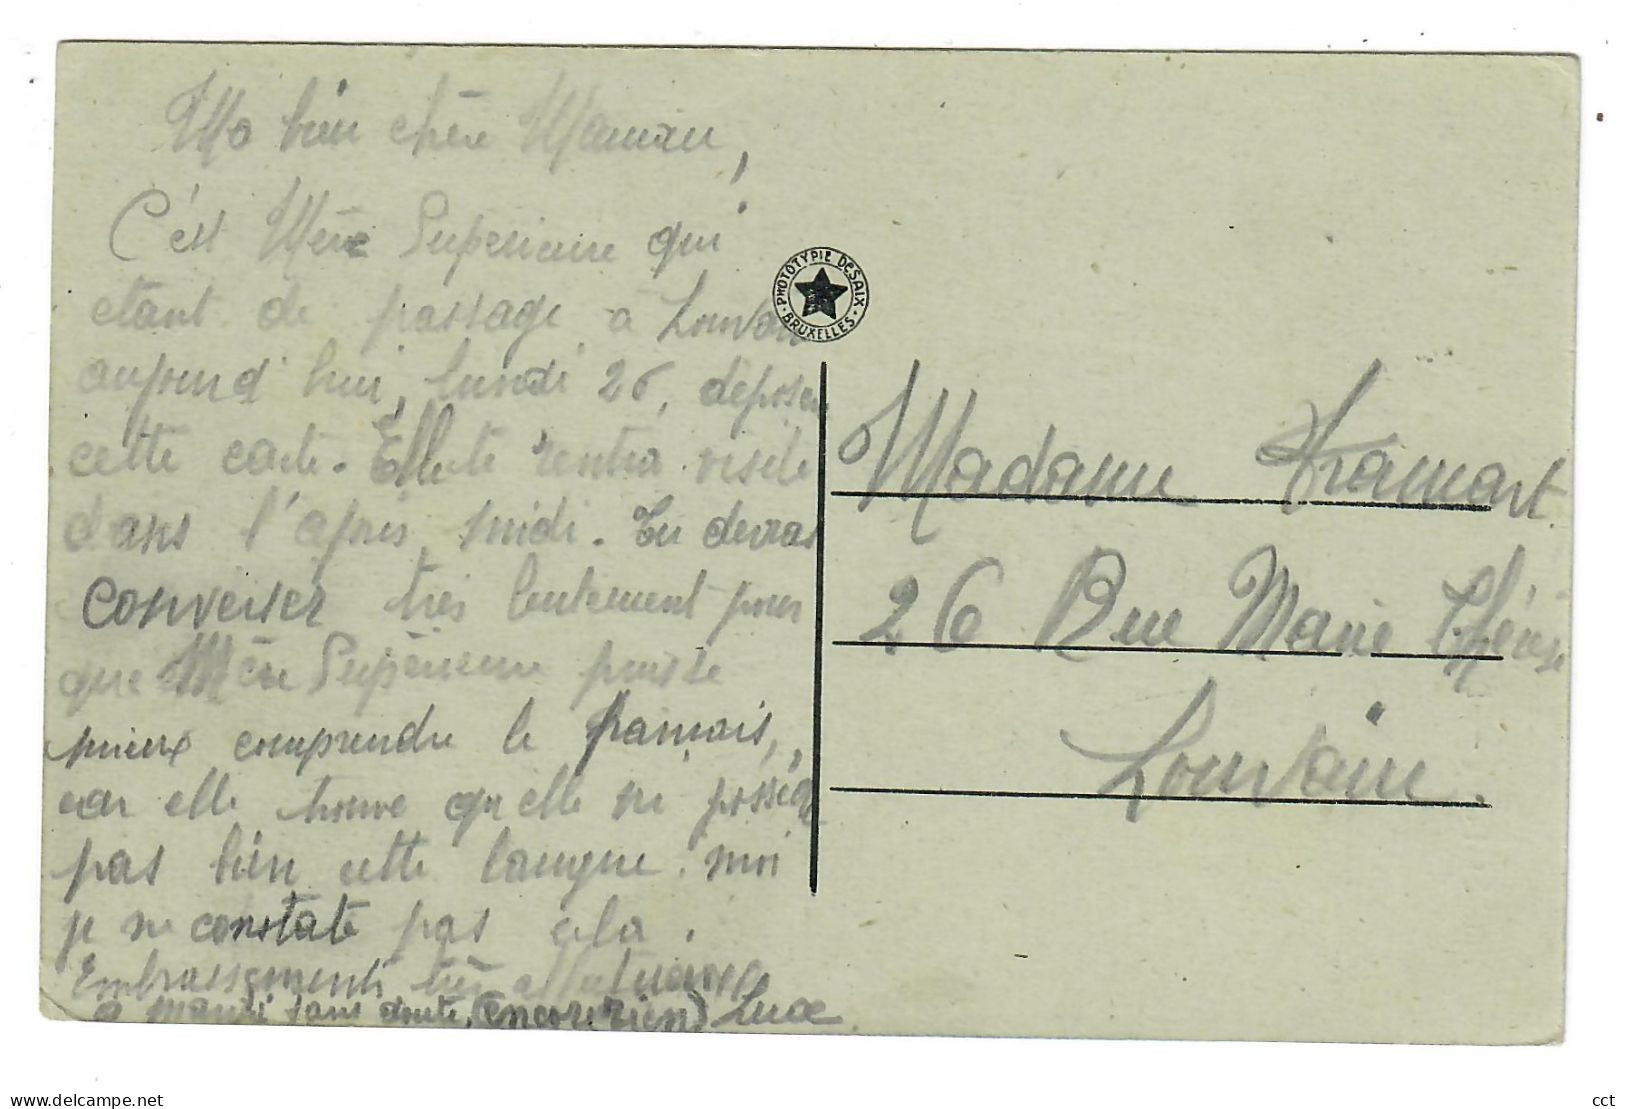 Ma bien chère Maman,
C'est Mère Supérieure qui
etant de passage à Louvain
aujourd'hui, lundi 26, déposera
cette carte. Elle te rendra visite
dans l'après midi. Tu devras
converser très lentement pour
que Mère Supérieure puisse
mieux comprendre le français,
car elle trouve qu'elle ne possède
pas bien cette langue. moi
je ne constate pas cela.
Embrassements très affectueux
à mardi sans doute, (encore rien) Luce
PHOTOTYPIE DESAIX
BRUXELLES
Madame Framart
26 Rue Marie Thérèse
Louvain.
delcampe.net
cct